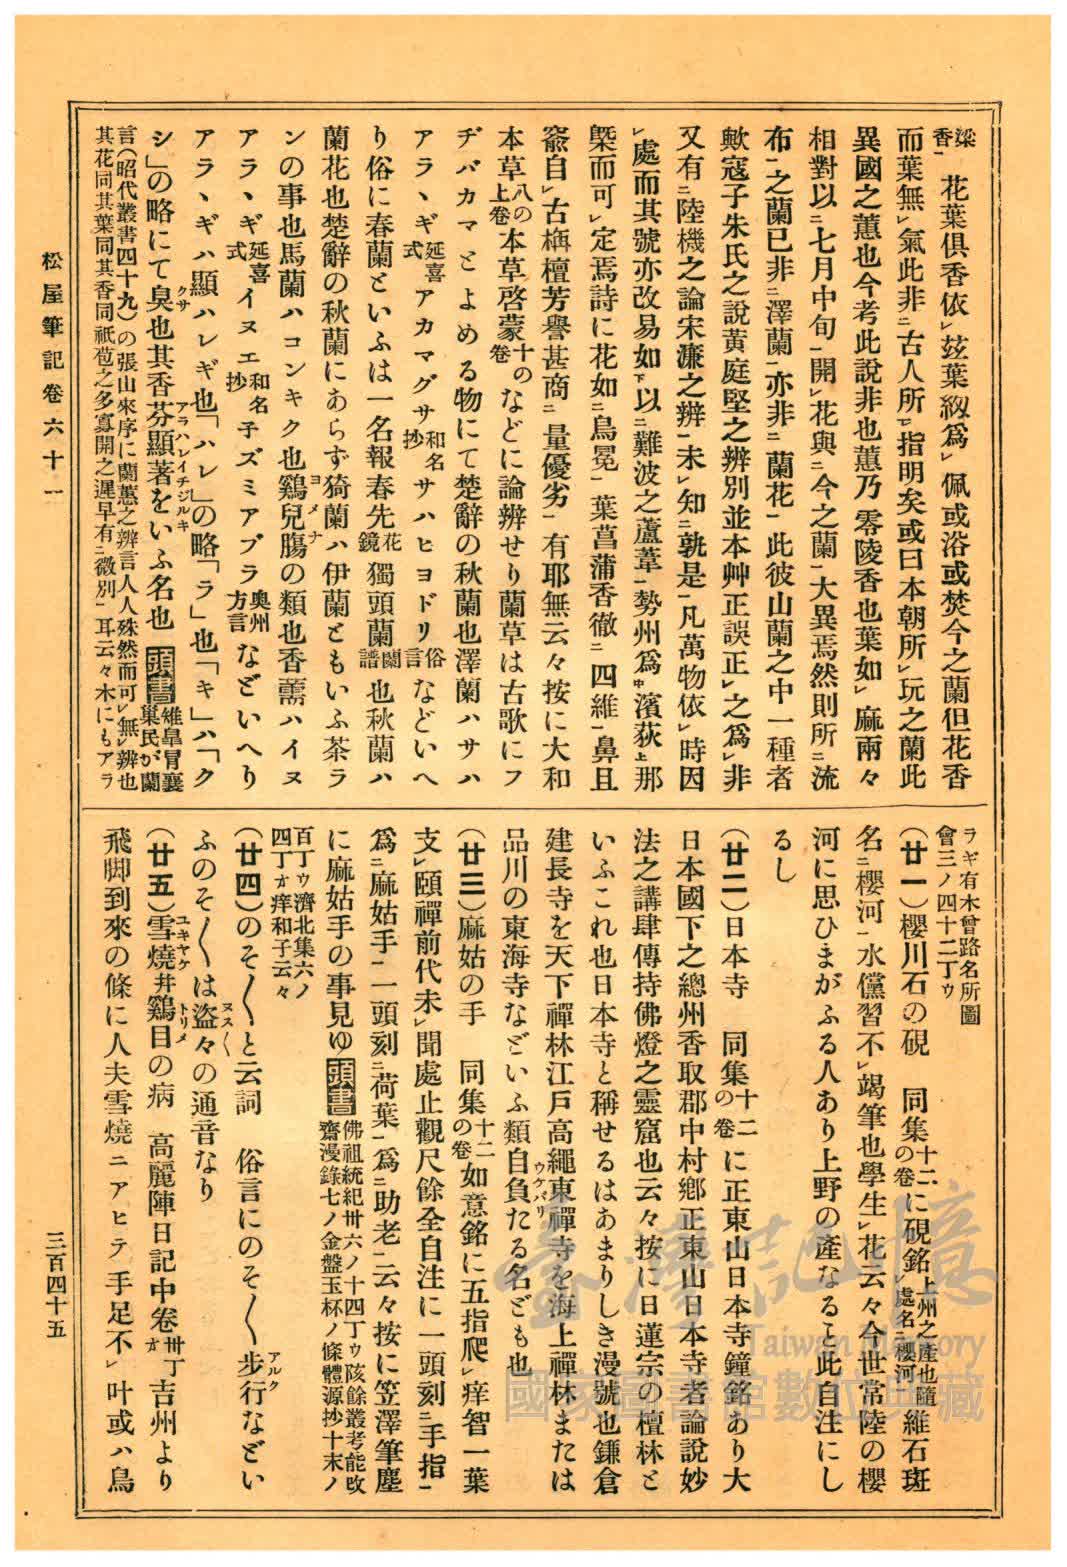 梁香一花葉俱香依レ玆葉紉爲レ佩或浴或焚今之蘭但花香
而葉無レ氣此非三古人所二指明一矣或曰本朝所レ玩之蘭此
異國之蕙也今考此說非也蕙乃零陵香也葉如レ麻兩々
相對以二七月中旬一開レ花與二今之蘭一大異焉然則所二流
布一之蘭已非二澤蘭一亦非二蘭花一此彼山蘭之中一種者
歟寇子朱氏之說黃庭堅之辨別並本艸正誤正レ之爲レ非
又有二陸機之論宋濂之辨一未レ知二孰是一凡萬物依レ時因
レ處而其號亦改易如下以二難波之蘆葦一勢州爲中濱荻上那
槩而可レ定焉詩に花如二鳥冕一葉菖蒲香徹二四維一鼻且
窬自レ古栴檀芳譽甚商二量優劣一有耶無云々按に大和
本草八の上卷本草啓蒙十の卷などに論辨せり蘭草は古歌にフ
ヂバカマとよめる物にて楚辭の秋蘭也澤蘭ハサハ
アラヽギ延喜式アカマグサ和名抄サハヒヨドリ俗言などいへ
り俗に春蘭といふは一名報春先花鏡獨頭蘭蘭譜也秋蘭ハ
蘭花也楚辭の秋蘭にあらず猗蘭ハ伊蘭ともいふ茶ラ
ンの事也馬蘭ハコンキク也鷄兒膓ヨメナの類也香薷ハイヌ
アラヽギ延喜式イヌエ和名抄子ズミアブラ奧州方言などいへり
アラヽギハ顯ハレギ也「ハレ」の略「ラ」也「キ」ハ「ク
シ」の略にて臭クサ也其香芬顯著アラハレイチジルキをいふ名也 頭書 雉皐冒襄巢民が蘭
言(昭代叢書四十九)の張山來序に蘭蕙之辨言人人殊然而可レ無レ辨也
其花同其葉同其香同祇苞之多寡開之遲早有二微別一耳云々木にもアラ
ラギ有木曾路名所圖
會三ノ四十二丁ウ
(廿一)櫻川石の硯 同集十二の卷に硯銘上州之產也隨レ處名二櫻河一維石斑
名二櫻河一水儻習不レ竭筆也學生レ花云々今世常陸の櫻
河に思ひまがふる人あり上野の產なると此自注にし
るし
(廿二)日本寺 同集十二の卷に正東山日本寺鐘銘あり大
日本國下之總州香取郡中村鄕正東山日本寺者論說妙
法之講肆傳持佛燈之靈窟也云々按に日蓮宗の檀林と
いふこれ也日本寺と稱せるはあまりしき漫號也鎌倉
建長寺を天下禪林江戶高繩東禪寺を海上禪林または
品川の東海寺などいふ類自負ウケバリたる名ども也
(廿三)麻姑の手 同集十二の卷如意銘に五指爬レ痒智一葉
支レ頤禪前代未レ聞處止觀尺餘全自注に一頭刻二手指一
爲二麻姑手一一頭刻二荷葉一爲二助老一云々按に笠澤筆塵
に麻姑手の事見ゆ 頭書 佛祖統紀卅六ノ十四丁ウ陔餘叢考能改齋漫錄七ノ金盤玉杯ノ條體源抄十末ノ
百丁ウ濟北集六ノ
四丁オ痒和子云々
(廿四)のそ〱と云詞 俗言にのそ〱步行アルクなどい
ふのそ〱は盜々ヌス〱の通音なり
(廿五)雪燒ユキヤケ幷鷄目トリメの病 高麗陣日記中卷卅丁オ吉州より
飛脚到來の條に人夫雪燒ニアヒテ手足不レ叶或ハ鳥
松屋筆記卷六十一
三百四十五
臺灣記憶
Taiwan Memory
國家圖書館數位典藏